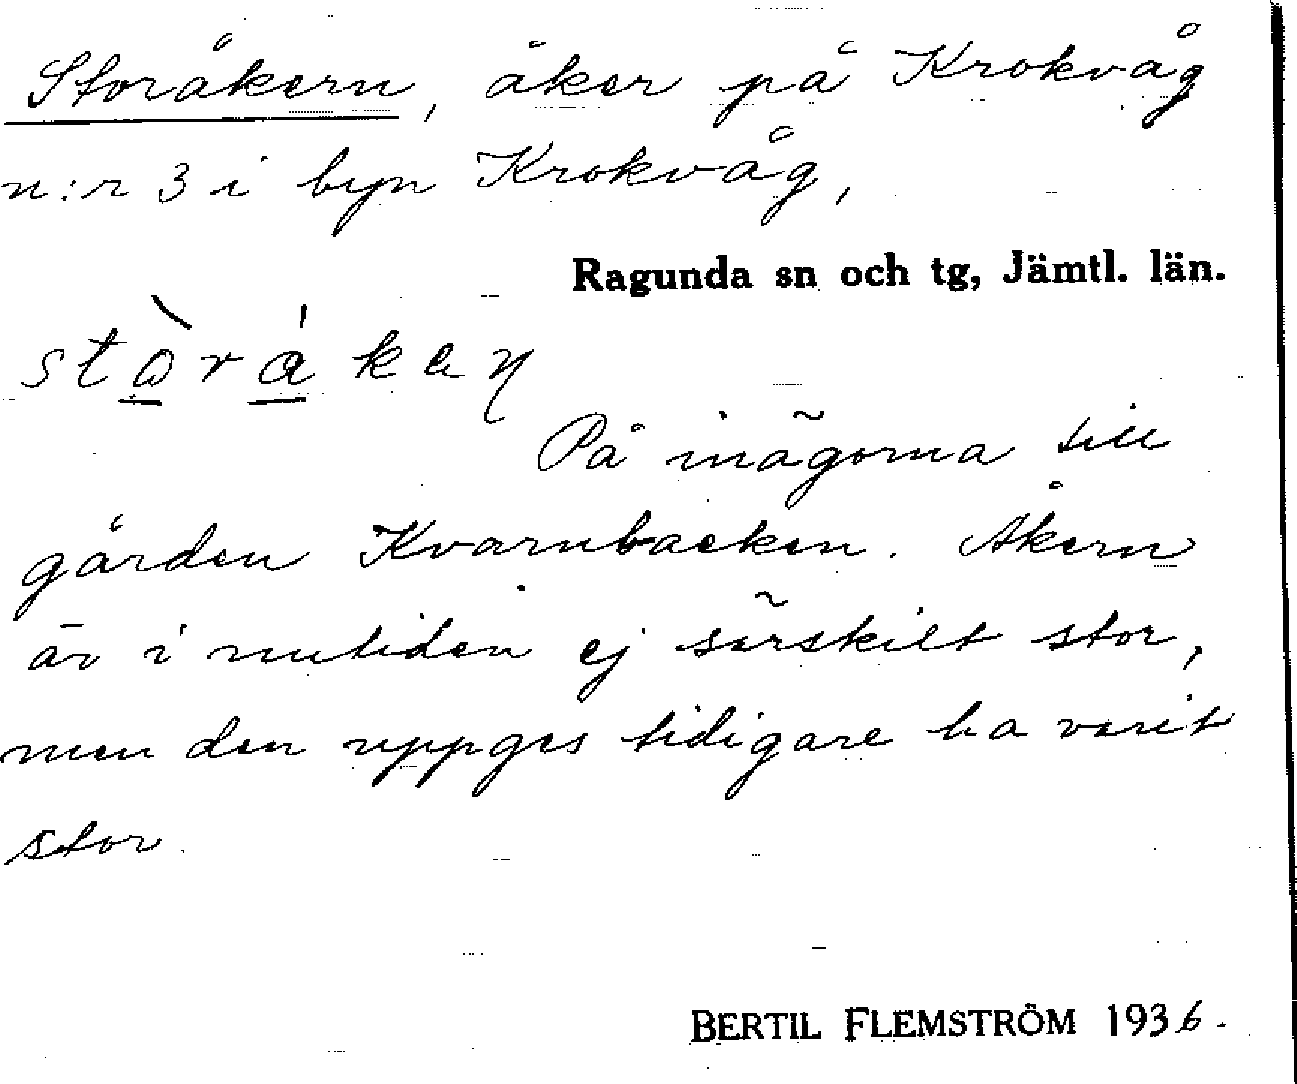 Storåkern, åker på Krokvåg
n:r 3 i byn Krokvåg,
Ragunda sn och tg, Jämtl. län.
På inägorna till
gården Kvarnbacken. Åkern
är i nutiden ej särskilt stor,
men den uppges tidigare ha varit
stor.
BERTIL FLEMSTRÖM 1936.